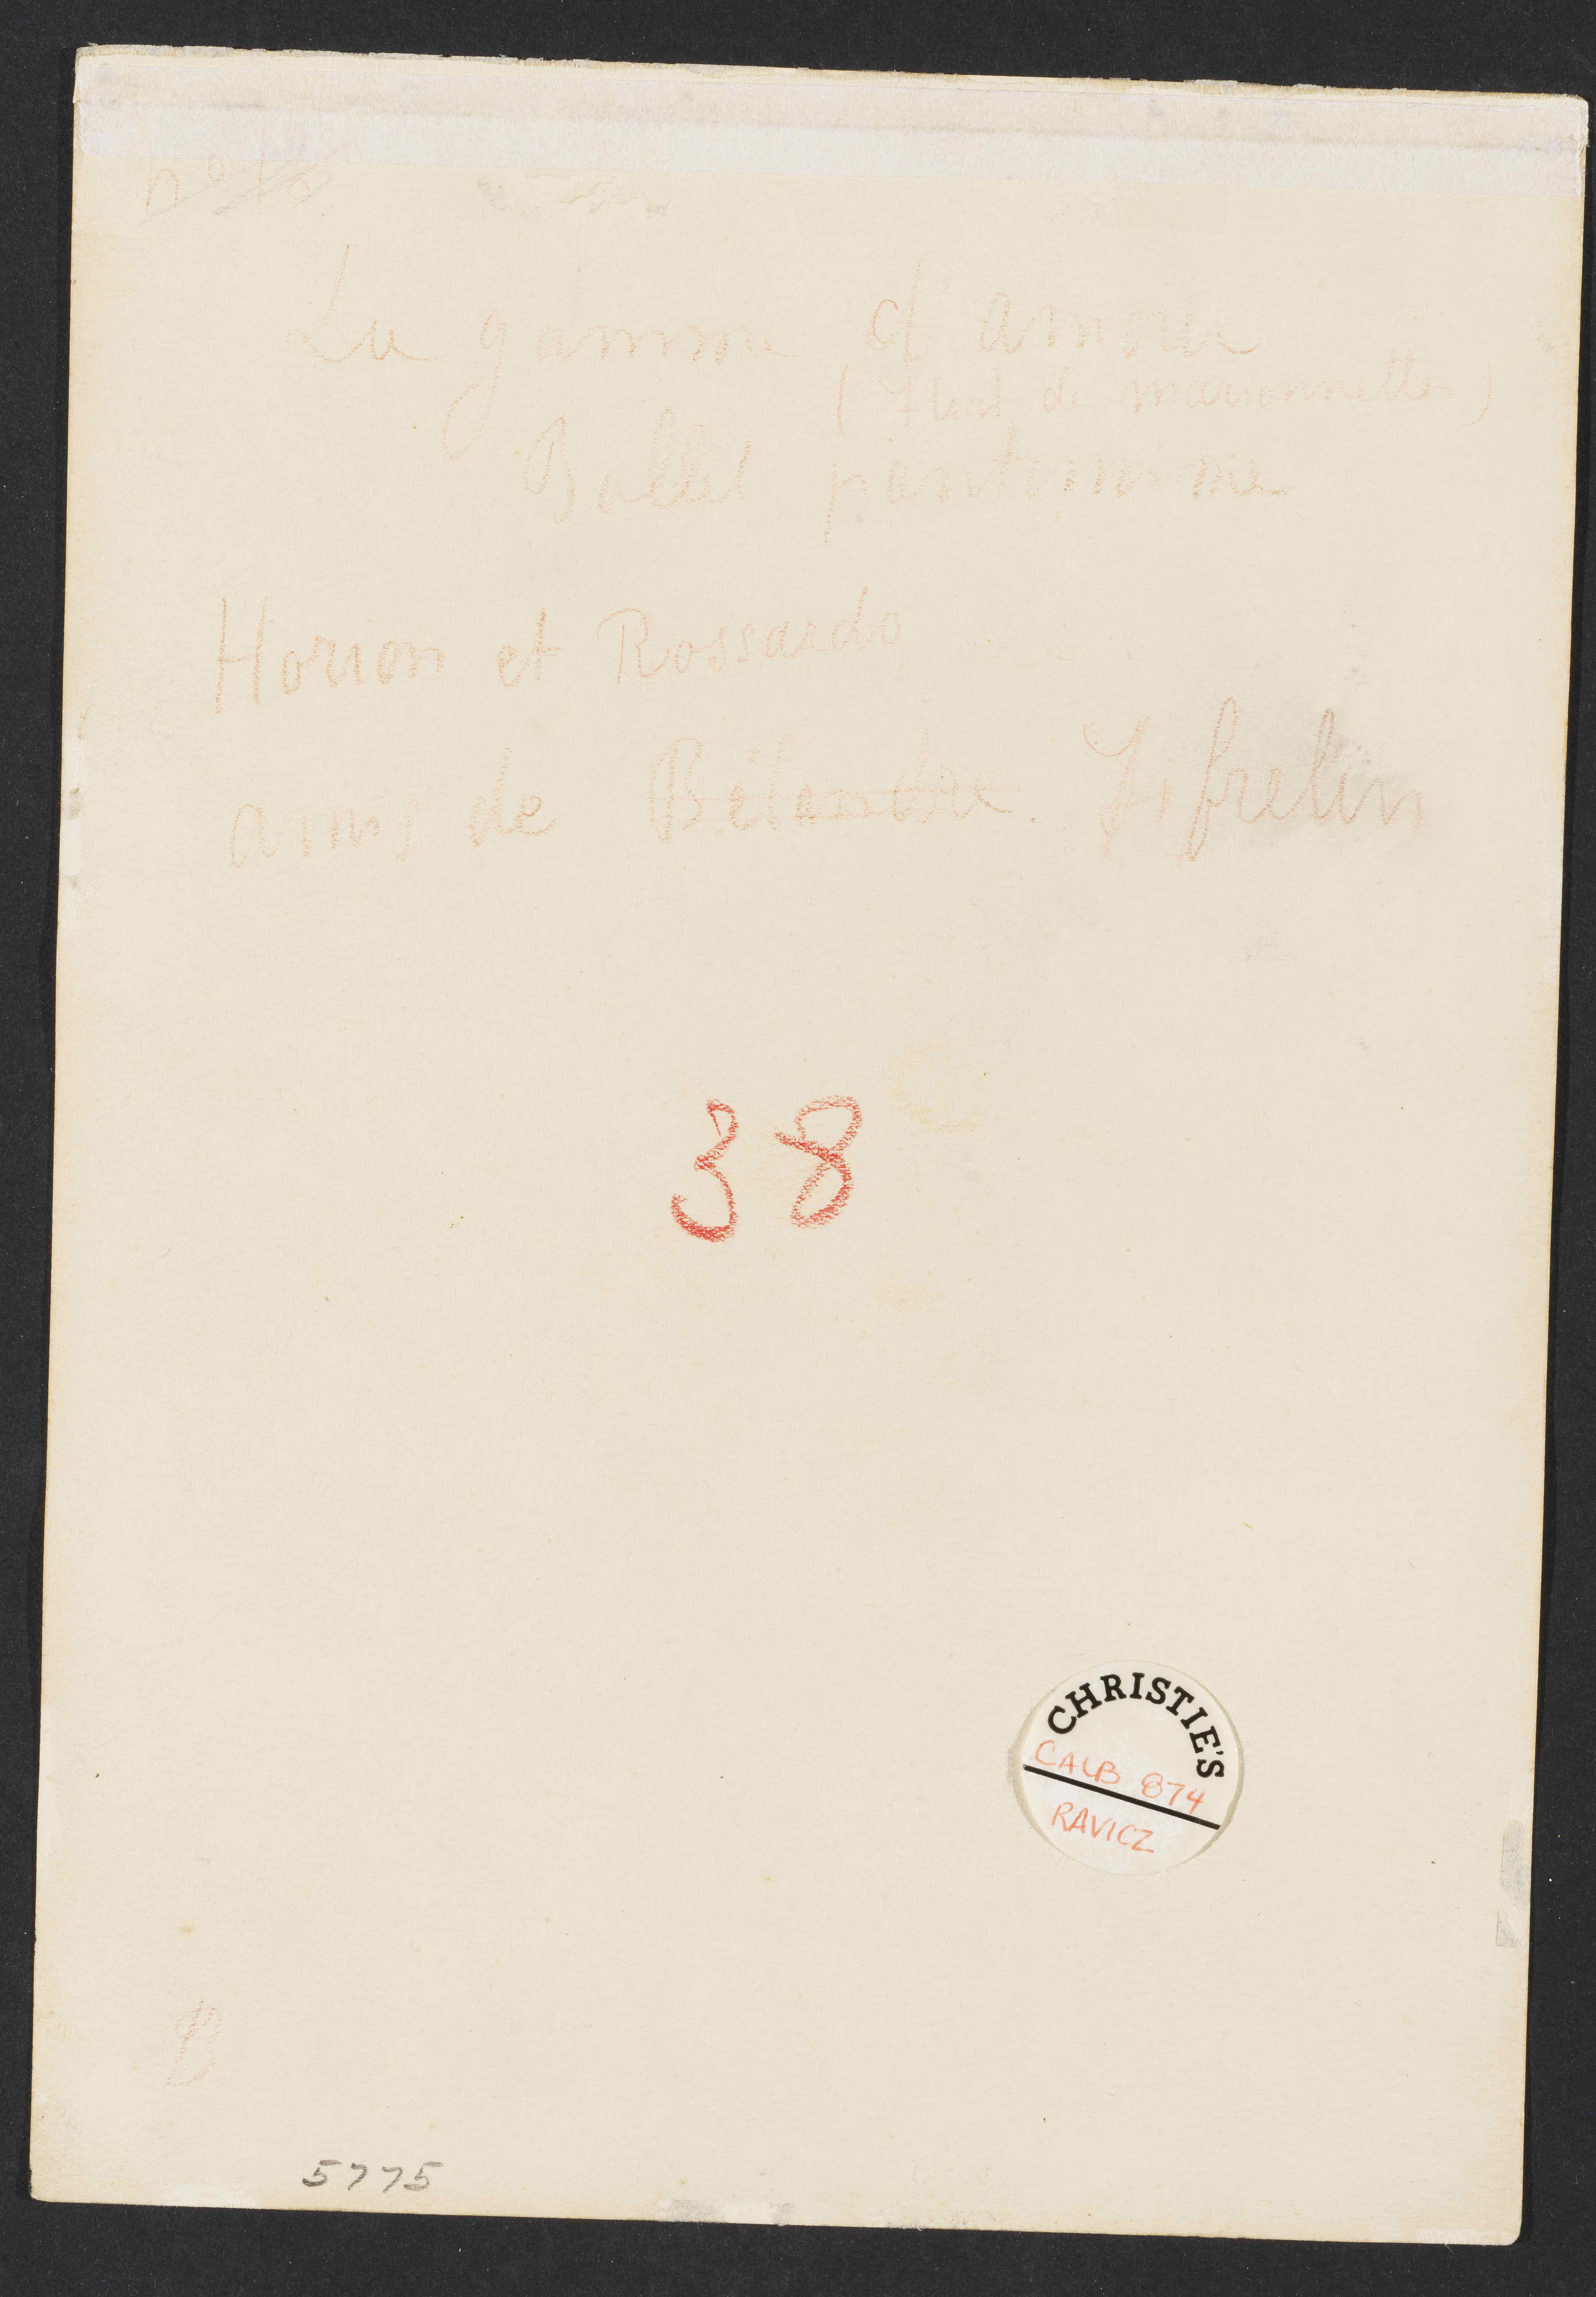 La gamme d'amour
(Flirt de marionnettes)
Ballet pantomime
Horion et Rossardo
amis de Bélandre. Fifrelin
38
CHRISTIE'S
CALB 874
RAVICZ
B
5775